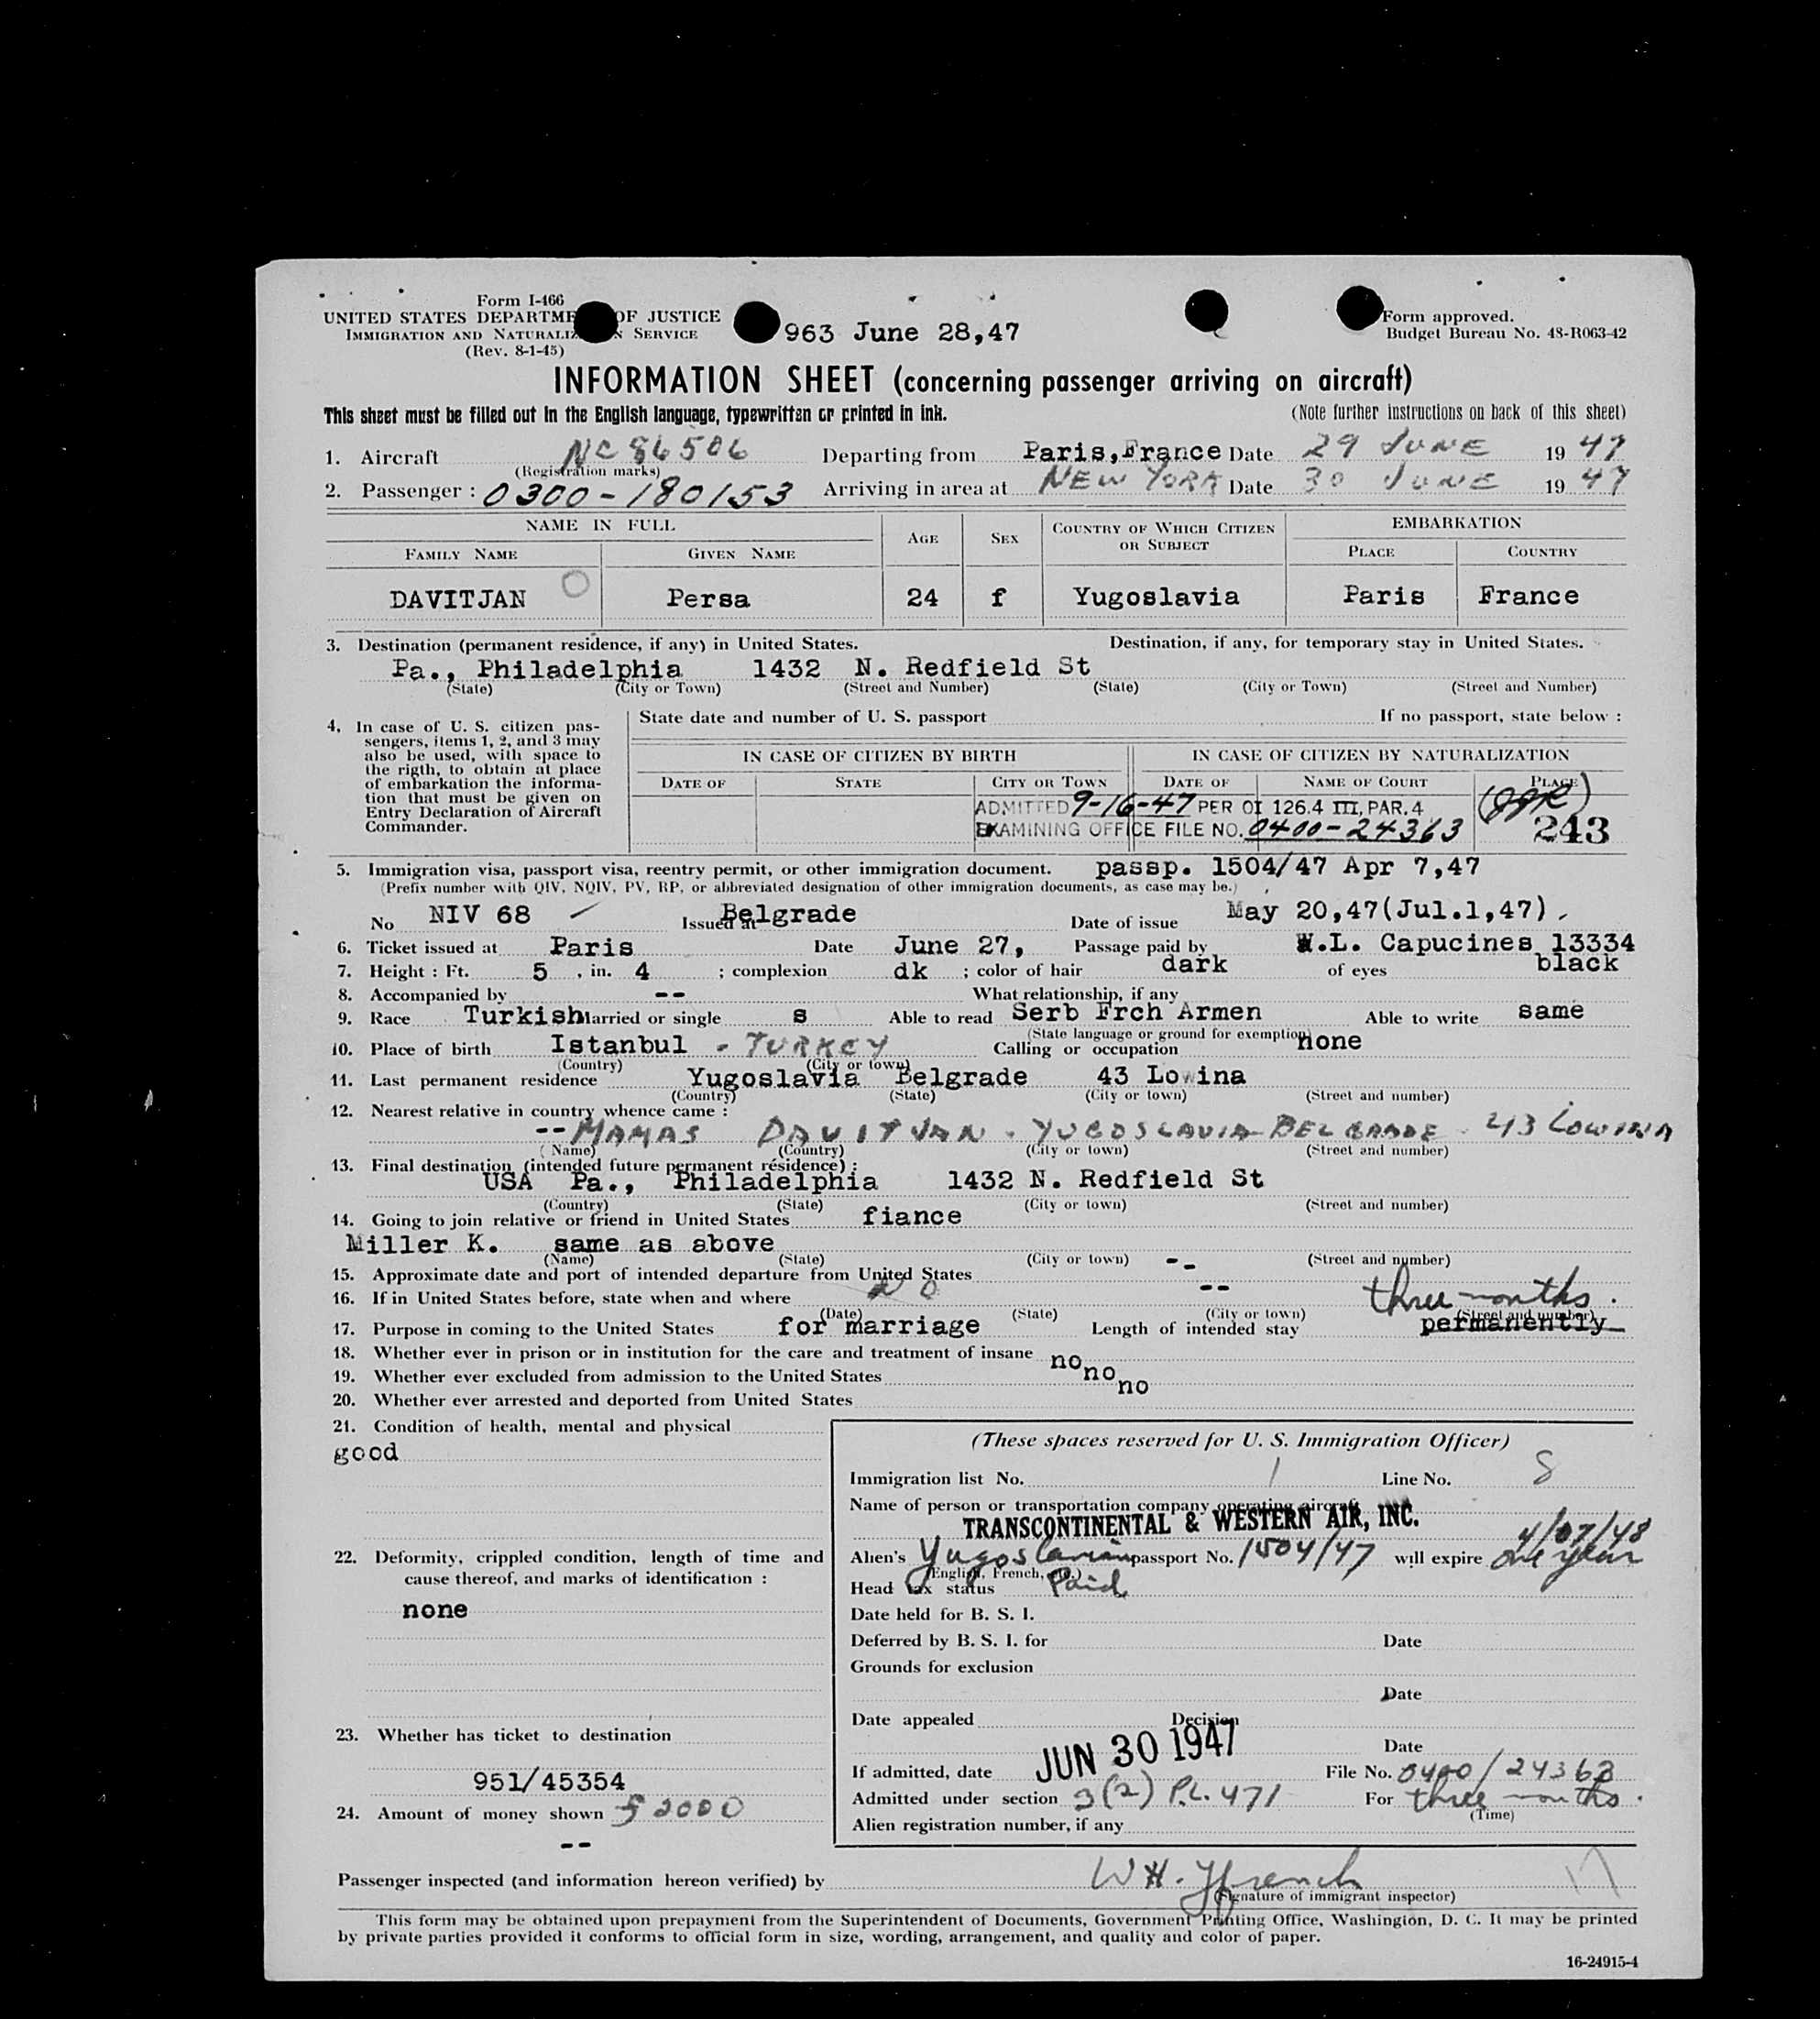 Form I-466
UNITED STATES DEPARTME OF JUSTICE
IMMIGRATION AND NATURALIZ N SERVICE
(Rev. 8-1-45)
963 June 28,47
Form approved.
Budget Bureau No. 48-R063-42
INFORMATION SHEET (concerning passenger arriving on aircraft)
This sheet must be filled out in the English language, typewritten or printed in ink. (Note further instructions on back of this sheet)
1. Aircraft NC 86506 Departing from Paris, France Date 29 JUNE 19 47
(Registration marks)
2. Passenger: 0300-180153 Arriving in area at NEW YORK Date 30 JUNE 19 47
NAME IN FULL AGE SEX COUNTRY OF WHICH CITIZEN OR SUBJECT EMBARKATION
FAMILY NAME GIVEN NAME PLACE COUNTRY
DAVITJAN Persa 24 f Yugoslavia Paris France
3. Destination (permanent residence, if any) in United States. Destination, if any, for temporary stay in United States.
Pa., Philadelphia 1432 N. Redfield St
(State) (City or Town) (Street and Number) (State) (City or Town) (Street and Number)
4. In case of U. S. citizen pas-
sengers, items 1, 2, and 3 may
also be used, with space to
the rigth, to obtain at place
of embarkation the informa-
tion that must be given on
Entry Declaration of Aircraft
Commander.
State date and number of U. S. passport If no passport, state below :
IN CASE OF CITIZEN BY BIRTH IN CASE OF CITIZEN BY NATURALIZATION
DATE OF STATE CITY OR TOWN DATE OF NAME OF COURT PLACE
ADMITTED 9-16-47 PER OI 126.4 III, PAR. 4
EXAMINING OFFICE FILE NO. 0400-24363 243
5. Immigration visa, passport visa, reentry permit, or other immigration document. passp. 1504/47 Apr 7,47
(Prefix number with QIV, NQIV, PV, RP, or abbreviated designation of other immigration documents, as case may be.)
No NIV 68 Issued at Belgrade Date of issue May 20,47(Jul.1,47)
6. Ticket issued at Paris Date June 27, Passage paid by W.L. Capucines 13334
7. Height : Ft. 5 , in. 4 ; complexion dk ; color of hair dark of eyes black
8. Accompanied by -- What relationship, if any
9. Race Turkish Married or single s Able to read Serb Frch Armen Able to write same
(State language or ground for exemption)
10. Place of birth Istanbul - TURKEY Calling or occupation none
(Country) (City or town)
11. Last permanent residence Yugoslavia Belgrade 43 Lowina
(Country) (State) (City or town) (Street and number)
12. Nearest relative in country whence came :
-- MAMAS DAVITJAN - YUGOSLAVIA - BELGRADE - 43 LOWINA
(Name) (Country) (City or town) (Street and number)
13. Final destination (intended future permanent résidence) :
USA Pa., Philadelphia 1432 N. Redfield St
(Country) (State) (City or town) (Street and number)
14. Going to join relative or friend in United States fiance
Miller K. same as above
(Name) (State) (City or town) (Street and number)
15. Approximate date and port of intended departure from United States --
16. If in United States before, state when and where NO --
(Date) (State) (City or town) (Street and number)
three months.
17. Purpose in coming to the United States for marriage Length of intended stay permanently
18. Whether ever in prison or in institution for the care and treatment of insane no
19. Whether ever excluded from admission to the United States no
20. Whether ever arrested and deported from United States no
21. Condition of health, mental and physical
good
22. Deformity, crippled condition, length of time and
cause thereof, and marks of identification :
none
23. Whether has ticket to destination
951/45354
24. Amount of money shown $ 2000
--
(These spaces reserved for U. S. Immigration Officer)
Immigration list No. 1 Line No. 8
Name of person or transportation company operating aircraft
TRANSCONTINENTAL & WESTERN AIR, INC.
4/07/48
Alien's Yugoslavian passport No. 1504/47 will expire one year
(English, French, etc.)
Head tax status Paid
Date held for B. S. I.
Deferred by B. S. I. for Date
Grounds for exclusion
Date
Date appealed Decision
Date
If admitted, date JUN 30 1947 File No. 0400/24363
Admitted under section 3(2) P.L. 471 For three months.
(Time)
Alien registration number, if any
Passenger inspected (and information hereon verified) by W H. Ffrench
(Signature of immigrant inspector)
This form may be obtained upon prepayment from the Superintendent of Documents, Government Printing Office, Washington, D. C. It may be printed
by private parties provided it conforms to official form in size, wording, arrangement, and quality and color of paper.
16-24915-4